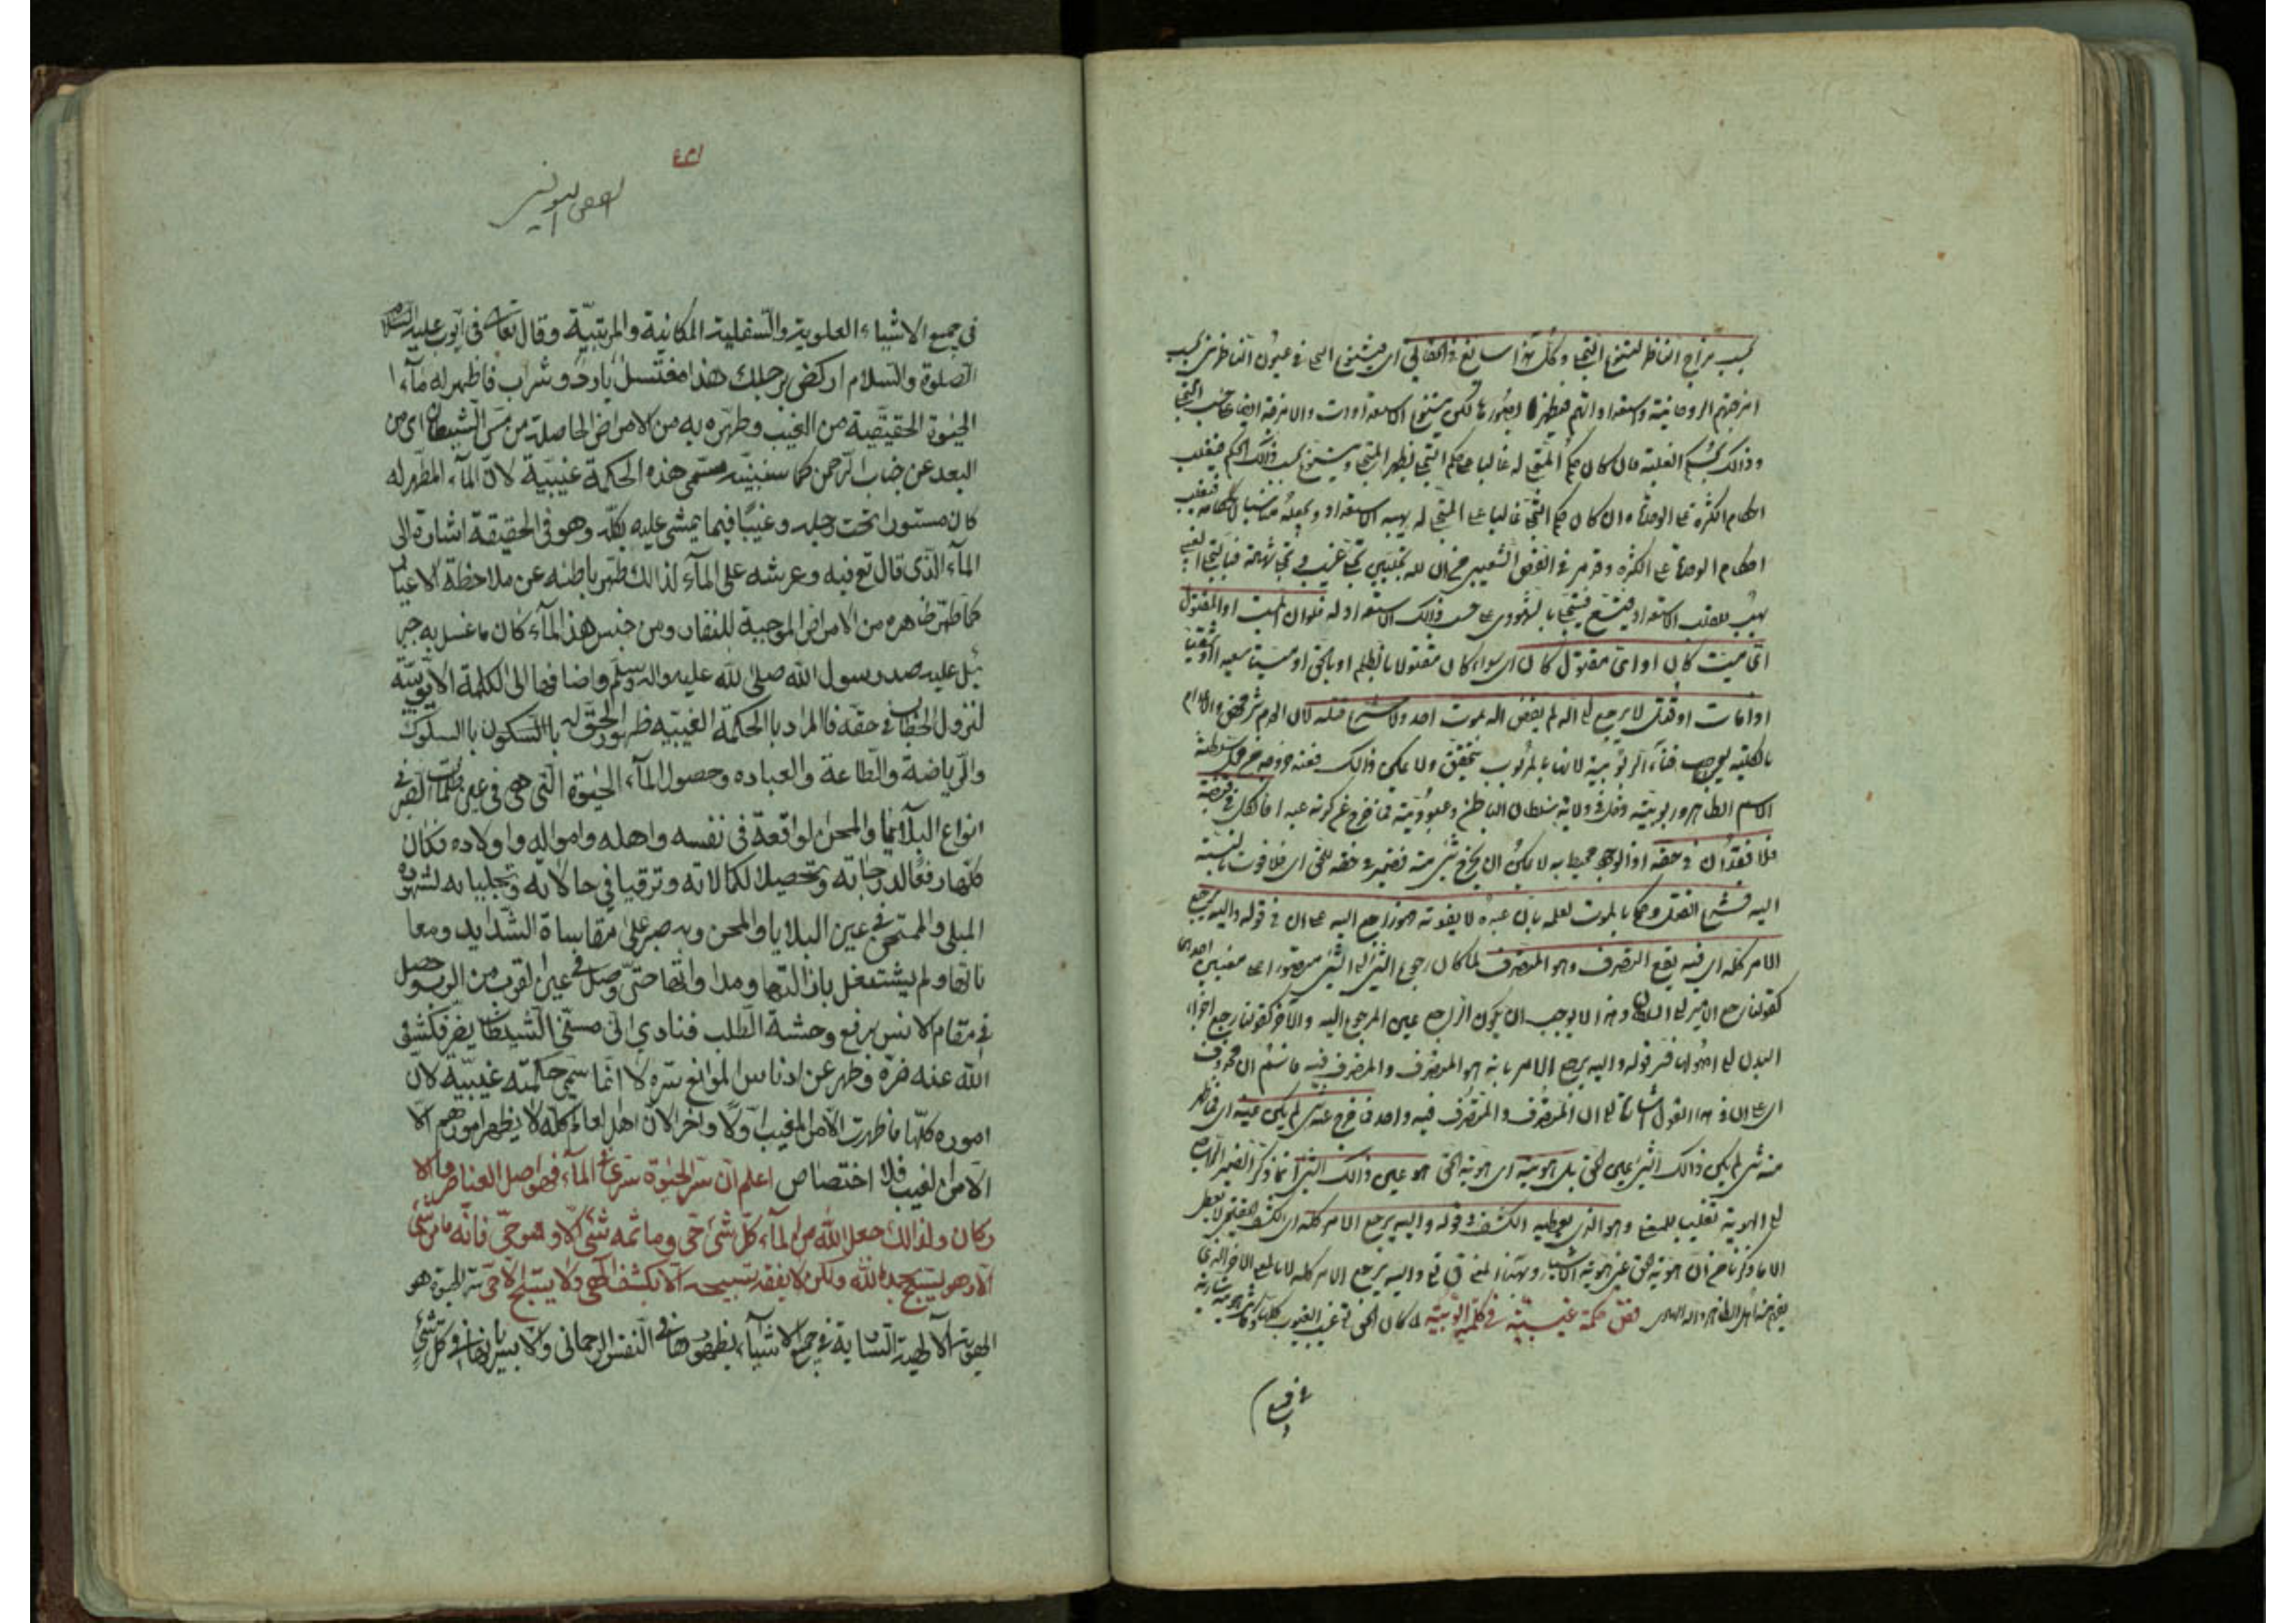 بحسب مزاج الناظر لتنوع التجلي وكل هذا سائغ في الحقائق اى يتنوع الحق في عيون الناظرين بحسب
امزجتهم الروحانية واستعداداتهم فيظهر بصورها لكن يتنوع الاستعدادات والامزجة ايضا بحسب التجلى
وذلك بحكم الغلبة فان كان حكم المتجلى له غالبا على حكم التجلى فيظهر المتجلى ويتنوع بحسب ذلك الحكم فيغلب
احكام الكثرة على الوحدة وان كان حكم التجلى غالبا على المتجلى له يهبه الاستعداد ويجعله مناسبا لاحكامه فيغلب
احكام الوحدة على الكثرة وقد مر في الفص الشعيبى من ان لله تجليين تجلى غيب وتجلى شهادة فبالتجلى الغيبى
يهب للقلب الاستعداد فيتسع فيتجلى بالشهودى على حسب ذلك الاستعداد له فلو ان الميت او المقتول
اى ميت كان او اى مقتول كان اى سواء كان مقتولا بالظلم او بالحق او ميتا سعيدا او شقيا
اذا مات او قتل لا يرجع الى الله لم يقض الله بموت احد ولا شرع قتله لان العدم شر محض والاعدام
بالكلية يوجب فناء الربوبية لانها بالمربوب يتحقق ولا يمكن ذلك فعند خروجه من حكم سلطنة
الاسم الظاهر وربوبيته دخل في ولاية سلطان الباطن وعبوديته فما خرج عن كونه عبدا فالكل في قبضته
فلا فقدان في حقه اذ الوجود محيط به لا يمكن ان يخرج شىء منه فضمير في حقه للحق اى فلا فوت بالنسبة
اليه فشرع القتل وحكم بالموت لعلمه بان عبده لا يفوته فهو راجع اليه على ان في قوله واليه يرجع
الامر كله اى فيه يقع التصرف وهو المتصرف لما كان رجوع الشىء الى الشىء متصورا على معنيين احدهما
كقولنا رجع الامير الى السلطان وهذا لا يوجب ان يكون الراجع عين المرجوع اليه والآخر كقولنا رجع اجزاء
البدن الى اصولها فسر قوله واليه يرجع الامر بانه هو المتصرف والمتصرف فيه فاسم ان محذوف
اى على ان في هذا القول اشارة الى ان المتصرف والمتصرف فيه واحد فما خرج عنه شىء لم يكن عينه اى فما ظهر
منه شىء لم يكن ذلك الشىء عين الحق بل هويته اى هوية الحق هو عين ذلك الشىء انما ذكر الضمير الراجع
الى الهوية تغليبا للمعنى وهو الذى يعطيه الكشف في قوله واليه يرجع الامر كله اى الكشف الصحيح لا يعطى
الا ما ذكرنا من ان هوية الحق عين هوية الاشياء وبهذا المعنى قال تعالى واليه يرجع الامر كله لا بالمعنى الآخر الذى
يفهم منه اهل الظاهر والله الهادى فص حكمة غيبية في كلمة ايوبية لما كان الحق في غيب الغيوب كلها وكانت هويته سارية
في جميع
٤٣١
الفص الايوبى
في جميع الاشياء العلوية والسفلية المكانية والمرتبية وقال تعالى فى ايوب عليه السلام
الصلوة والسلام اركض برجلك هذا مغتسل بارد وشراب فاظهر له مآء ا
الحيوة الحقيقية من الغيب وطهره به من الامراض الحاصلة من مس الشيطان اى من
البعد عن جناب الرحمن كما سنبينه سمى هذه الحكمة غيبية لان المآء المطهر له
كان مستورا تحت رجله وغيبا فيما يمشى عليه بكله وهو في الحقيقة اشارة الى
المآء الذى قال تع فيه وعرشه على المآء لذالك طهر باطنه عن ملاحظة الاغيار
كما طهر ظاهره من الامراض الموجبة للنفار ومن جنس هذا المآء كان ما غسل به جبر
ئيل عليه صدر رسول الله صلى الله عليه واله وسلم واضافها الى الكلمة الايوبية
لنزول الخطاب في حقه فالمراد بالحكمة الغيبيه ظهور الحق له باالسكون باالسلوك
والرياضة والطاعة والعباده وحصول المآء الحيوة التى هى في عين ظلمات القبر في
انواع البلايا والمحن الواقعة فى نفسه واهله وامواله واولاده فكان
كلها رفعا لدرجاته وتحصيلا لكمالاته وترقيا في حالاته وتجليا به لشهوده
المبلى والممتحن في عين البلايا والمحن وبه صبر على مقاساة الشدايد ومعا
ناتها ولم يشتغل بازالتها ومداواتها حتى وصل في عين القرب من الوصول حصل
فى مقام الانس برفع وحشة الطلب فنادى انى مسنى الشيطان بضر فكشف
الله عنه ضره وطهر عن ادناس الموانع سره لا انما سمى حكمته غيبية لان
اموره كلها ما ظهرت الا من المغيب اولا واخرا لان اهل العالم كله لا يظهر امورهم الا
الا من الغيب فلا اختصاص اعلم ان سر الحيوة سرى في المآء فهو اصل العناصر والا
ركان ولذالك جعل الله من المآء كل شئ حى وما ثمه شئ الا وهو حى فانه ما من شئ
الا وهو يسبح بحمد الله ولكن لا يفقه تسبيحه الا بكشف الهى ولا يسبح الا حى سر الحيوة هو
الهوية الالهية السارية في جميع الاشيآء بظهورها في النفس الرحمانى ولا بسريانها في كل شئ